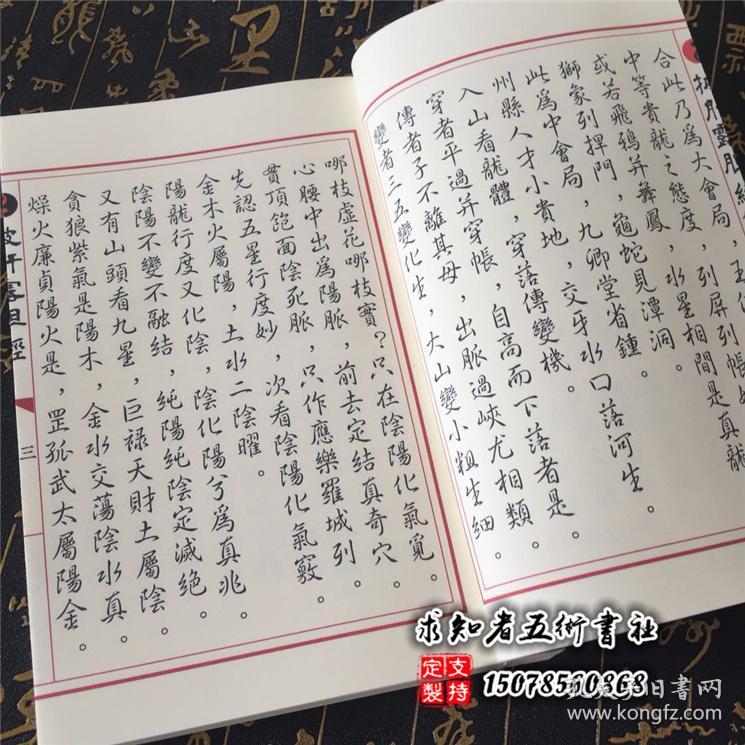 合此乃爲大會局,
列屏列帳
中等貴龍之態度,水星相間是真龍
或若飛鴉并舞鳳,龜蛇見潭洞。
獅象列捍門,九卿堂省鍾。
此爲中會局,交牙水口落河生。
州縣人才小貴地,穿落傳變機。
入山看龍體,自高而下落者是。
穿者平過并穿帳,出脈過峽尤相類。
傳者子不離其母,大山變小粗生細。
變者二五變化生,
哪枝虛花哪枝實?只在陰陽化氣覓。
心腰中出爲陽脈,前去定結真奇穴。
貫頂飽面陰死脈,只作應樂羅城列。
先認五星行度妙,次看陰陽化氣竅。
金木火屬陽,土水二陰曜。
陽龍行度又化陰,陰化陽兮爲真兆。
陰陽不變不融結,純陽純陰定滅絕。
又有山頭看九星,巨禄天財土屬陰。
貪狼紫氣是陽木,金水交蕩陰水真。
燥火廉貞陽火是,罡孤武太屬陽金。
三
求知者五術書社
支持
定製
15078510868
孔夫子旧書网
www.kongfz.com